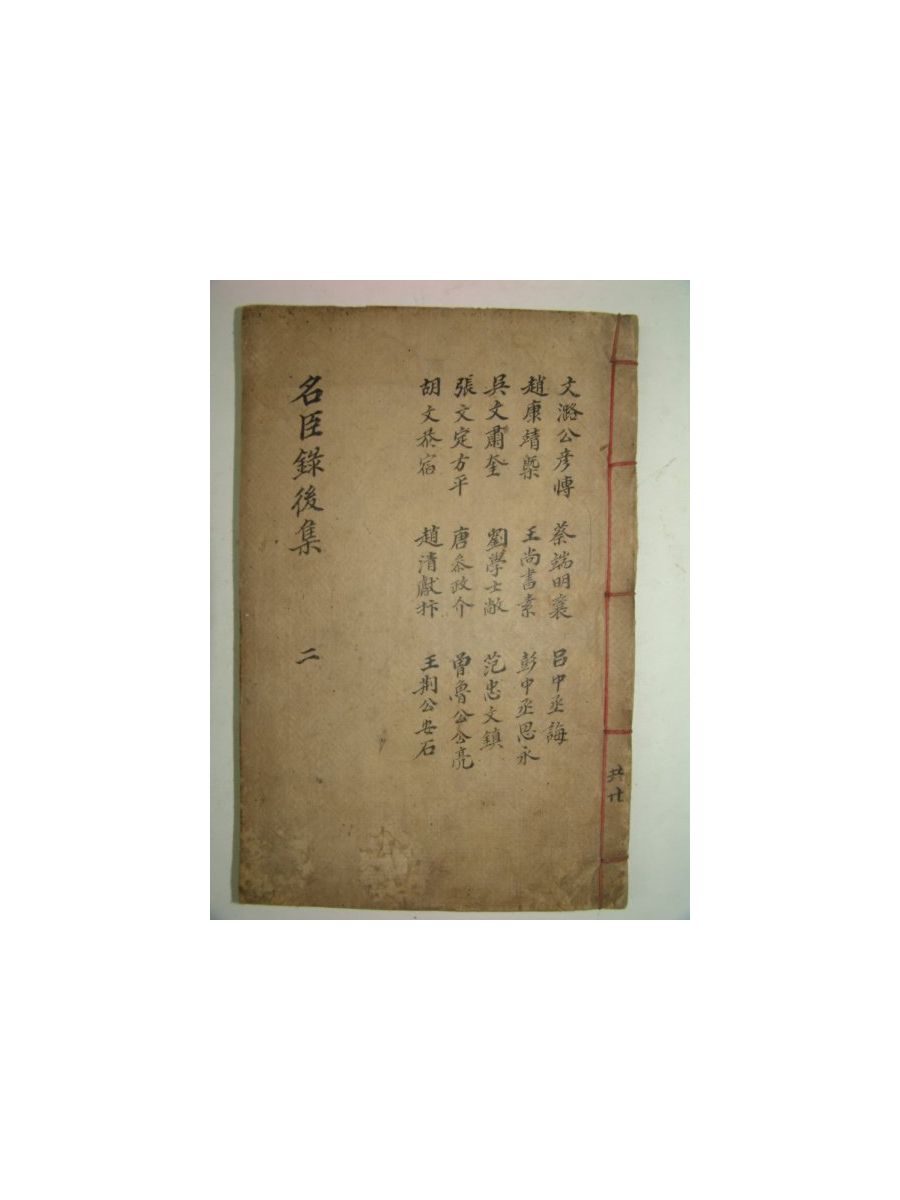 共
文潞公彦愽 蔡端明襄 呂中丞誨
趙康靖槩 王尚書素 彭中丞思永
吳文肅奎 劉學士敞 范忠文鎮
張文定方平 唐叅政介 曾魯公公亮
胡文恭宿 趙清獻抃 王荊公安石
名臣錄後集 二